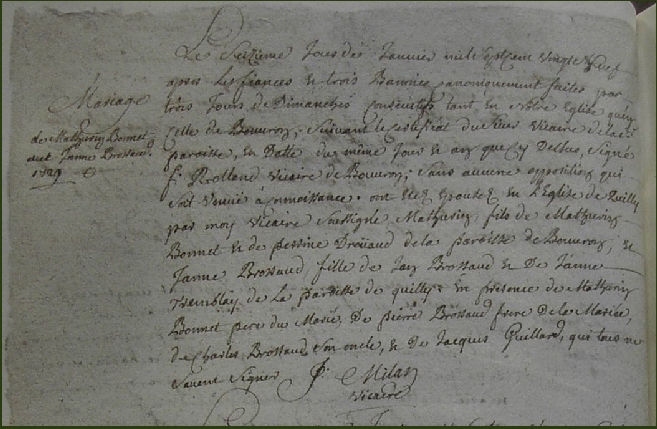 Mariage
de Mathurin Bonnet
avec Janne Brossaud.
1729
Le Seizieme Jour de Janvier mil sept cent vingt & neuf
apres les fiances & trois Bannies canoniquement faites par
trois Jours de Dimanches consecutifs tant en notre Eglise qu'en
celle de Bouvron, suivant le certificat du Sieur Vicaire de la de
paroisse, en datte du même Jour & an que cy dessus, signé
f. Rolland vicaire de Bouvron; sans aucune opposition qui
soit venuë a connoissance. ont etez epousez en l'Eglise de Quilly
par moy vicaire soussigné Mathurin fils de Mathurin
Bonnet & de perrine Drouaud de la paroisse de Bouvron, &
Janne Brossaud fille de Jan Brossaud & De Janne
Tremblay de La paroisse de quilly: En presence de Mathurin
Bonnet pere du Marié, De pierre Brossaud frere de la Mariée,
de Charles Brossaud son oncle, & De Jacques Guillard, qui tous ne
savent signer J. Milan
vicaire